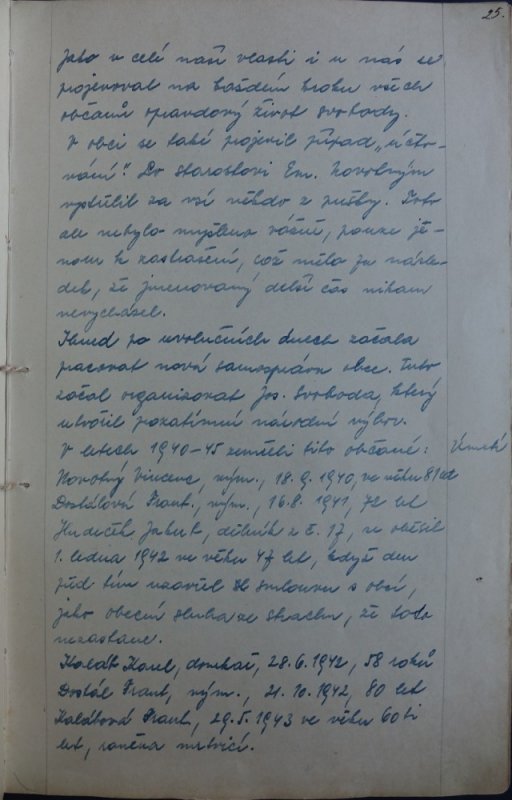 25.
Jako v celé naší vlasti i u nás se
projevoval na každém kroku všech
občanů opravdový život svobody.
V obci se také projevil případ „účto-
vání". Po starostovi Em. Novotným
vystřelil za vsí někdo z pušky. Toto
ale nebylo myšleno vážně, pouze je-
nom k zastrašení, což mělo za násle-
dek, že jmenovaný delší čas nikam
nevycházel.
Ihned po revolučních dnech začala
pracovat nová samospráva obce. Tuto
začal organisovat Jos. Svoboda, který
utvořil prozatímní národní výbor.
V letech 1940-45 zemřeli tito občané: Úmrtí
Novotný Vincenc, výmn., 18.9.1940, ve věku 81 let
Dostálová Frant., výmn., 16.8.1941, 72 let
Hudeček Jakub, dělník z č. 17, se oběsil
1. ledna 1942 ve věku 47 let, když den
před tím uzavřel smlouvu s obcí,
jako obecní sluha ze strachu, že toto
nezastane.
Kalát Karel, domkař, 28.6.1942, 58 roků
Dostál Frant, výmn., 21.10.1942, 80 let
Kalátová Frant, 29.5.1943 ve věku 60ti
let, raněna mrtvicí.